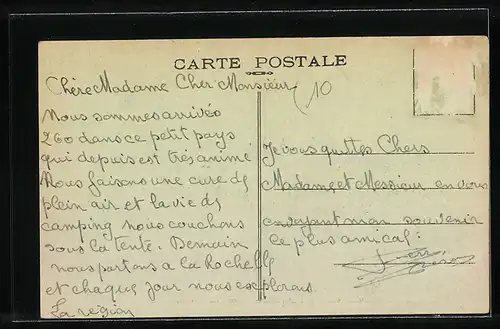 CARTE POSTALE
Chère Madame Cher Monsieur
10
Nous sommes arrivés
260 dans ce petit pays
qui depuis est très animé
Nous faisons une cure de
plein air et la vie de
camping nous couchons
sous la tente. Demain
nous partons a la Rochelle
et chaque jour nous explorons
La région
Je vous quittes Chers
Madame, et Messieur en vous
envoyant mon souvenir
le plus amical: